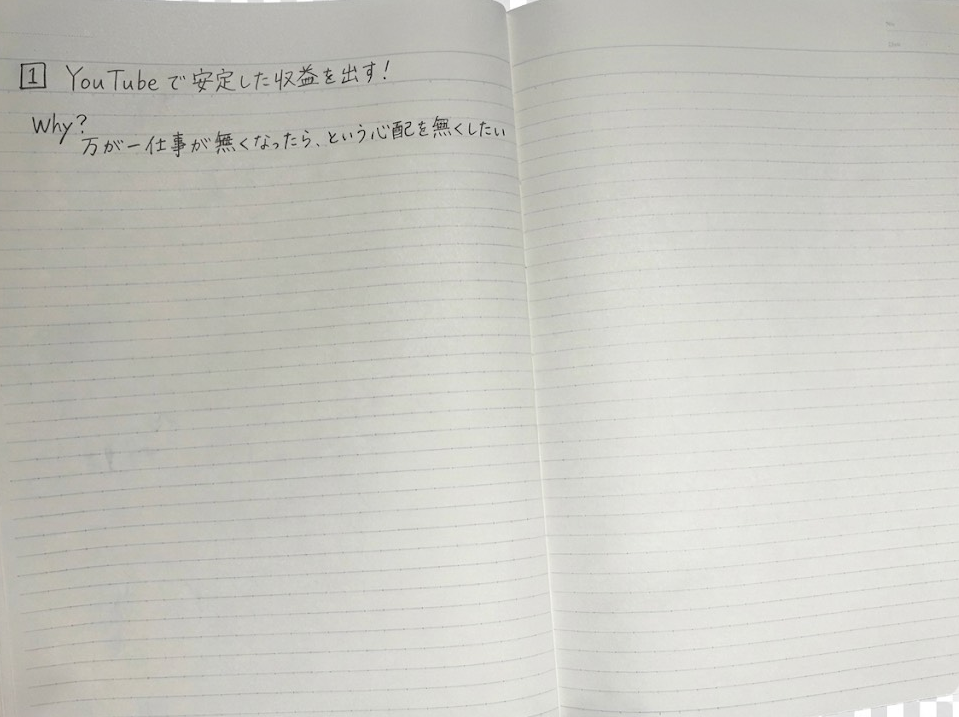 1 YouTubeで安定した収益を出す!
Why?
万が一仕事が無くなったら、という心配を無くしたい